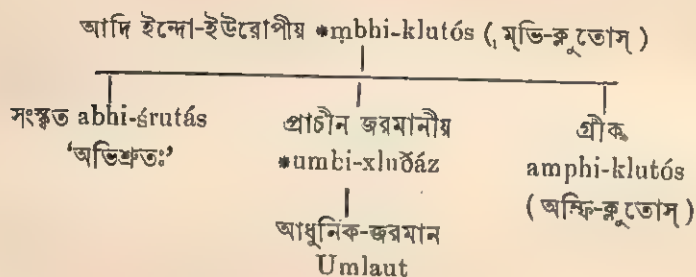 আদি ইন্দো-ইউরোপীয় *m̥bhi-klutós (ম্‌ভি-ক্লুতোস্)
সংস্কৃত abhi-śrutás
‘অভিশ্রুতঃ’
প্রাচীন জরমানীয়
*umbi-xluðáz
আধুনিক-জরমান
Umlaut
গ্রীক
amphi-klutós
(অম্ফি-ক্লুতোস্)